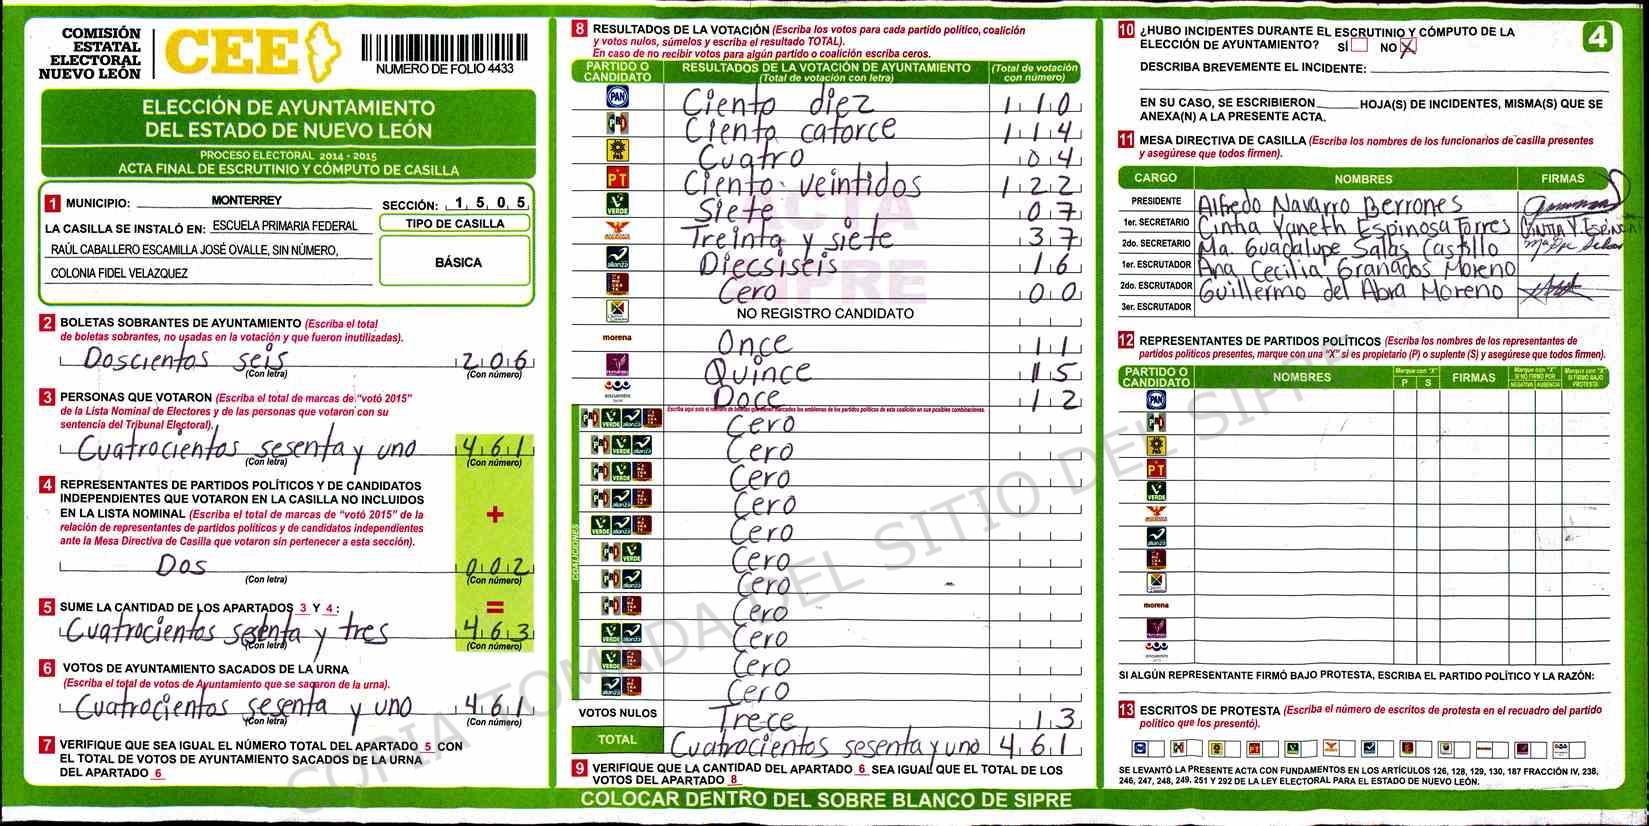 COMISIÓN
ESTATAL
ELECTORAL
NUEVO LEÓN
CEE
NUMERO DE FOLIO 4433
ELECCIÓN DE AYUNTAMIENTO
DEL ESTADO DE NUEVO LEÓN
PROCESO ELECTORAL 2014 - 2015
ACTA FINAL DE ESCRUTINIO Y CÓMPUTO DE CASILLA
1 MUNICIPIO: MONTERREY SECCIÓN: 1 5 0 5
LA CASILLA SE INSTALÓ EN: ESCUELA PRIMARIA FEDERAL
RAÚL CABALLERO ESCAMILLA JOSÉ OVALLE, SIN NÚMERO,
COLONIA FIDEL VELAZQUEZ
TIPO DE CASILLA
BÁSICA
2 BOLETAS SOBRANTES DE AYUNTAMIENTO (Escriba el total
de boletas sobrantes, no usadas en la votación y que fueron inutilizadas).
Doscientos seis 2 0 6
(Con letra) (Con número)
3 PERSONAS QUE VOTARON (Escriba el total de marcas de "votó 2015"
de la Lista Nominal de Electores y de las personas que votaron con su
sentencia del Tribunal Electoral).
Cuatrocientos sesenta y uno 4 6 1
(Con letra) (Con número)
4 REPRESENTANTES DE PARTIDOS POLÍTICOS Y DE CANDIDATOS
INDEPENDIENTES QUE VOTARON EN LA CASILLA NO INCLUIDOS
EN LA LISTA NOMINAL (Escriba el total de marcas de "votó 2015" de la
relación de representantes de partidos políticos y de candidatos independientes
ante la Mesa Directiva de Casilla que votaron sin pertenecer a esta sección).
+
Dos 0 0 2
(Con letra) (Con número)
5 SUME LA CANTIDAD DE LOS APARTADOS 3 Y 4: =
Cuatrocientos sesenta y tres 4 6 3
(Con letra) (Con número)
6 VOTOS DE AYUNTAMIENTO SACADOS DE LA URNA
(Escriba el total de votos de Ayuntamiento que se sacaron de la urna).
Cuatrocientos sesenta y uno 4 6 1
(Con letra) (Con número)
7 VERIFIQUE QUE SEA IGUAL EL NÚMERO TOTAL DEL APARTADO 5 CON
EL TOTAL DE VOTOS DE AYUNTAMIENTO SACADOS DE LA URNA
DEL APARTADO 6
8 RESULTADOS DE LA VOTACIÓN (Escriba los votos para cada partido político, coalición
y votos nulos, súmelos y escriba el resultado TOTAL).
En caso de no recibir votos para algún partido o coalición escriba ceros.
PARTIDO O CANDIDATO RESULTADOS DE LA VOTACIÓN DE AYUNTAMIENTO (Total de votación con letra) (Total de votación con número)
PAN Ciento diez 1 1 0
PRI Ciento catorce 1 1 4
PRD Cuatro 0 4
PT Ciento veintidos 1 2 2
VERDE Siete 0 7
Treinta y siete 3 7
alianza Diecsiseis 1 6
Cero 0 0
NO REGISTRO CANDIDATO
morena Once 1 1
Quince 1 5
encuentro social Doce 1 2
Escriba aquí solo el número de boletas que fueron marcados los emblemas de los partidos políticos de esta coalición en sus posibles combinaciones.
COALICIONES
PRI VERDE alianza Cero
PRI VERDE alianza Cero
PRI VERDE Cero
PRI alianza Cero
VERDE alianza Cero
PRI VERDE Cero
PRI alianza Cero
PRI Cero
VERDE alianza Cero
VERDE Cero
alianza Cero
VOTOS NULOS Trece 1 3
TOTAL Cuatrocientos sesenta y uno 4 6 1
9 VERIFIQUE QUE LA CANTIDAD DEL APARTADO 6 SEA IGUAL QUE EL TOTAL DE LOS
VOTOS DEL APARTADO 8
COLOCAR DENTRO DEL SOBRE BLANCO DE SIPRE
10 ¿HUBO INCIDENTES DURANTE EL ESCRUTINIO Y CÓMPUTO DE LA
ELECCIÓN DE AYUNTAMIENTO? SÍ NO X
4
DESCRIBA BREVEMENTE EL INCIDENTE:
EN SU CASO, SE ESCRIBIERON HOJA(S) DE INCIDENTES, MISMA(S) QUE SE
ANEXA(N) A LA PRESENTE ACTA.
11 MESA DIRECTIVA DE CASILLA (Escriba los nombres de los funcionarios de casilla presentes
y asegúrese que todos firmen).
CARGO NOMBRES FIRMAS
PRESIDENTE Alfredo Navarro Berrones
1er. SECRETARIO Cintia Yaneth Espinosa Torres CINTIA Y. ESPINOSA
2do. SECRETARIO Ma. Guadalupe Salas Castillo
1er. ESCRUTADOR Ana Cecilia Granados Moreno
2do. ESCRUTADOR Guillermo del Abra Moreno
3er. ESCRUTADOR
12 REPRESENTANTES DE PARTIDOS POLÍTICOS (Escriba los nombres de los representantes de
partidos políticos presentes, marque con una "X" si es propietario (P) o suplente (S) y asegúrese que todos firmen).
PARTIDO O CANDIDATO NOMBRES Marque con "X" P S FIRMAS Marque con "X" SI NO FIRMÓ POR NEGATIVA AUSENCIA Marque con "X" SI FIRMÓ BAJO PROTESTA
PAN
PRI
PRD
PT
VERDE
alianza
morena
encuentro social
SI ALGÚN REPRESENTANTE FIRMÓ BAJO PROTESTA, ESCRIBA EL PARTIDO POLÍTICO Y LA RAZÓN:
13 ESCRITOS DE PROTESTA (Escriba el número de escritos de protesta en el recuadro del partido
político que los presentó).
SE LEVANTÓ LA PRESENTE ACTA CON FUNDAMENTOS EN LOS ARTÍCULOS 126, 128, 129, 130, 187 FRACCIÓN IV, 238,
246, 247, 248, 249, 251 Y 292 DE LA LEY ELECTORAL PARA EL ESTADO DE NUEVO LEÓN.
ACTA
SIPRE
COPIA TOMADA DEL SITIO DEL SIPRE